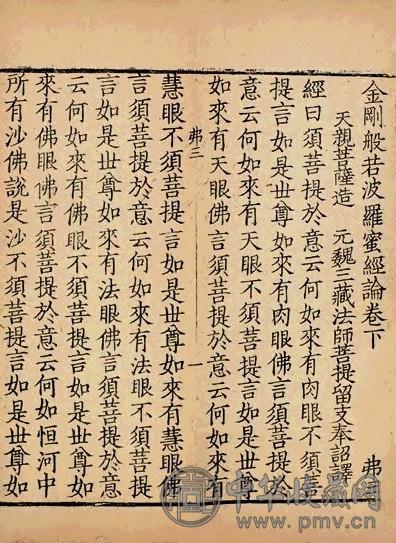 金剛般若波羅蜜經論卷下 弗
天親菩薩造 元魏三藏法師菩提留支奉詔譯
經曰須菩提於意云何如來有肉眼不須菩
提言如是世尊如來有肉眼佛言須菩提於
意云何如來有天眼不須菩提言如是世尊
如來有天眼佛言須菩提於意云何如來有
弗三 一
慧眼不須菩提言如是世尊如來有慧眼佛
言須菩提於意云何如來有法眼不須菩提
言如是世尊如來有法眼佛言須菩提於意
云何如來有佛眼不須菩提言如是世尊如
來有佛眼佛言須菩提於意云何如恒河中
所有沙佛說是沙不須菩提言如是世尊如
中华收藏网
www.pmv.cn